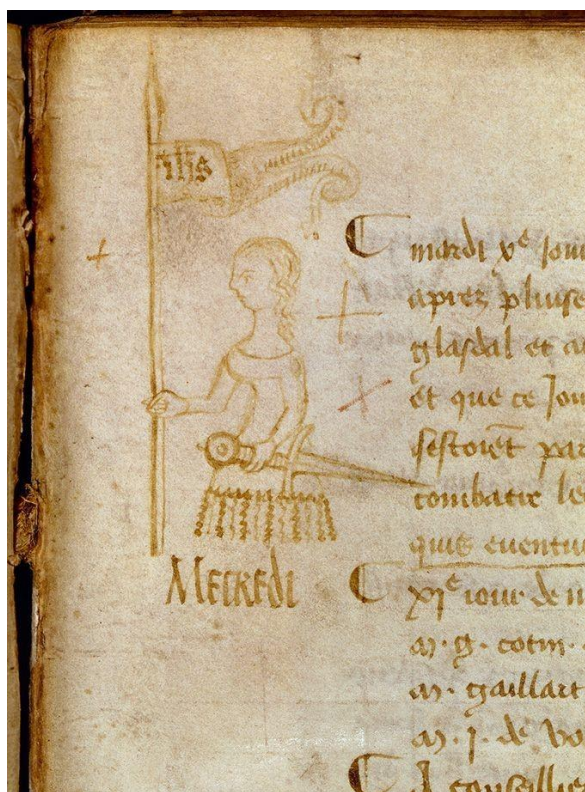 ihs
mardi xe jour
aprez pluise
glasdal et au
et que ce Jour
sestoiēt par
combatre le
quis eventu
Mecredi
xje iour de m
m. g. cotin.
m. gaillart
m. j. de vo
A conseillie